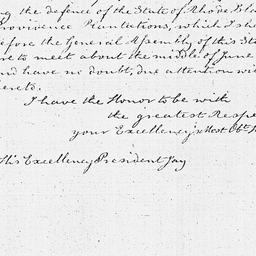 ng the defence of the State of Rhode Isla
Providence Plantations, which I sha
before the General Assembly of this Sta
are to meet about the middle of June
and have no doubt, due attention wi
hereto.
I have the Honor to be with
the greatest Respe
your Excellency's Most Obt. H
His Excellency President Jay